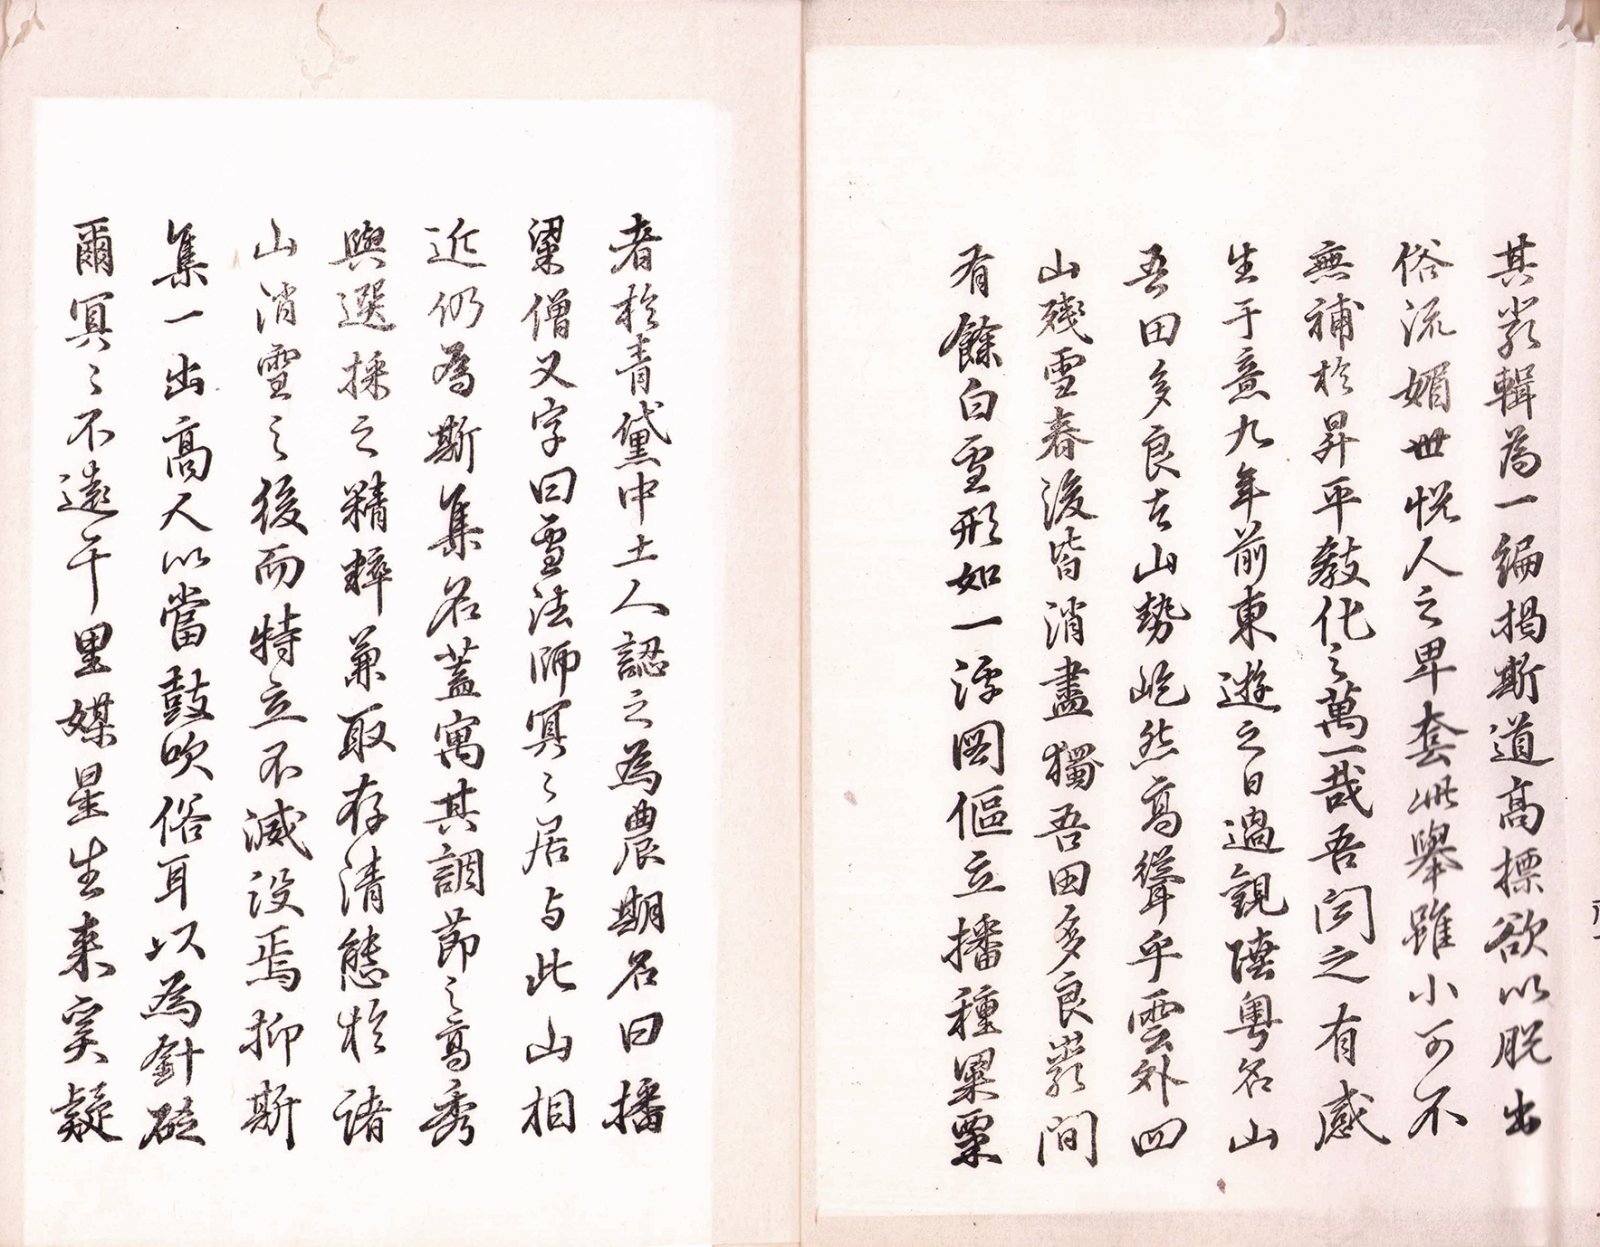 其叢輯為一編揭斯道高標欲以脫出
俗流媚世悅人之卑套此舉雖小可不
無補於昇平教化之萬一哉吾聞之有感
生于意九年前東遊之日過觀陸粵名山
吾田多良古山勢屹然高聳乎雲外四
山殘雪春後皆消盡獨吾田多良嶽間
有餘白雪形如一浮圖傴立播種粱粟
者於青黛中土人認之為農期名曰播
粱僧又字曰雪法師冥〻居与此山相
近仍為斯集名蓋寓其調節之高秀
與選採之精粹兼取存清態於諸
山消雪之後而特立不滅没焉抑斯
集一出高人以當鼓吹俗耳以為針砭
爾冥〻不遠千里媒星生来奚疑